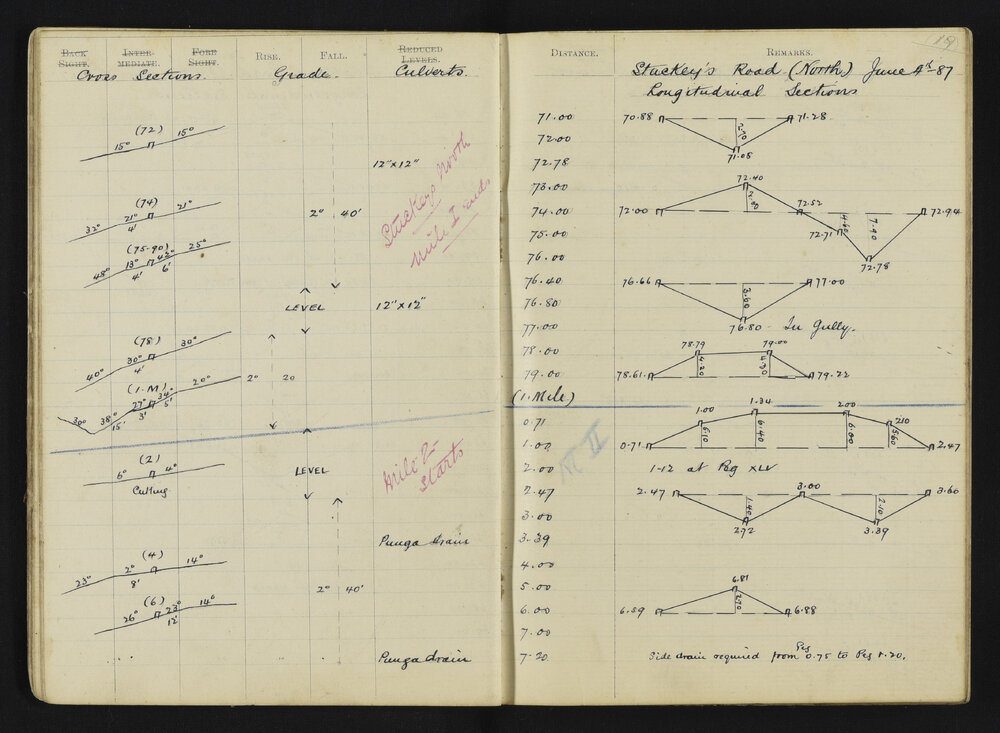 BACK SIGHT. INTERMEDIATE. FORE SIGHT. RISE. FALL. REDUCED LEVELS.
Cross Sections. Grade. Culverts.
(72)
15° 15°
12"x12"
(74)
32° 21° 21°
4'
2° 40'
Stuckeys North
Mile I ends
(75-90)
48° 13° 42° 25°
4' 6'
LEVEL 12"x12"
(78)
40° 30° 30°
4'
(1.M)
30° 38° 27° 34° 20°
15' 3' 5'
2° 20
(2)
6° 4°
Cutting
LEVEL
Mile 2
Starts
Punga drain
(4)
23° 2° 14°
8'
2° 40'
(6)
26° 23° 14°
12'
Punga drain
19
DISTANCE. REMARKS.
Stuckey's Road (North) June 4th 87
Longitudinal Sections
71.00 70.88 71.28
2.70
72.00 71.05
72.78
73.00 72.40
2.80
74.00 72.00 72.52 72.94
4.60 7.40
75.00 72.71
76.00 72.78
76.40 76.66 77.00
3.60
76.80
77.00 76.80 - In Gully.
78.00 78.79 79.00
4.20 4.30
79.00 78.61 79.22
(1. Mile)
0.71 1.00 1.34 2.00 210
6.10 6.40 6.00 5.60
1.00 0.71 2.47
M II
2.00 1-12 at Peg XLV
2.47 2.47 3.00 3.60
1.40 2.10
3.00 2.92 3.39
3.39
4.00
5.00 6.81
2.70
6.00 6.59 6.88
7.00
7.20 Side drain required from Peg 0.75 to Peg 1.20.